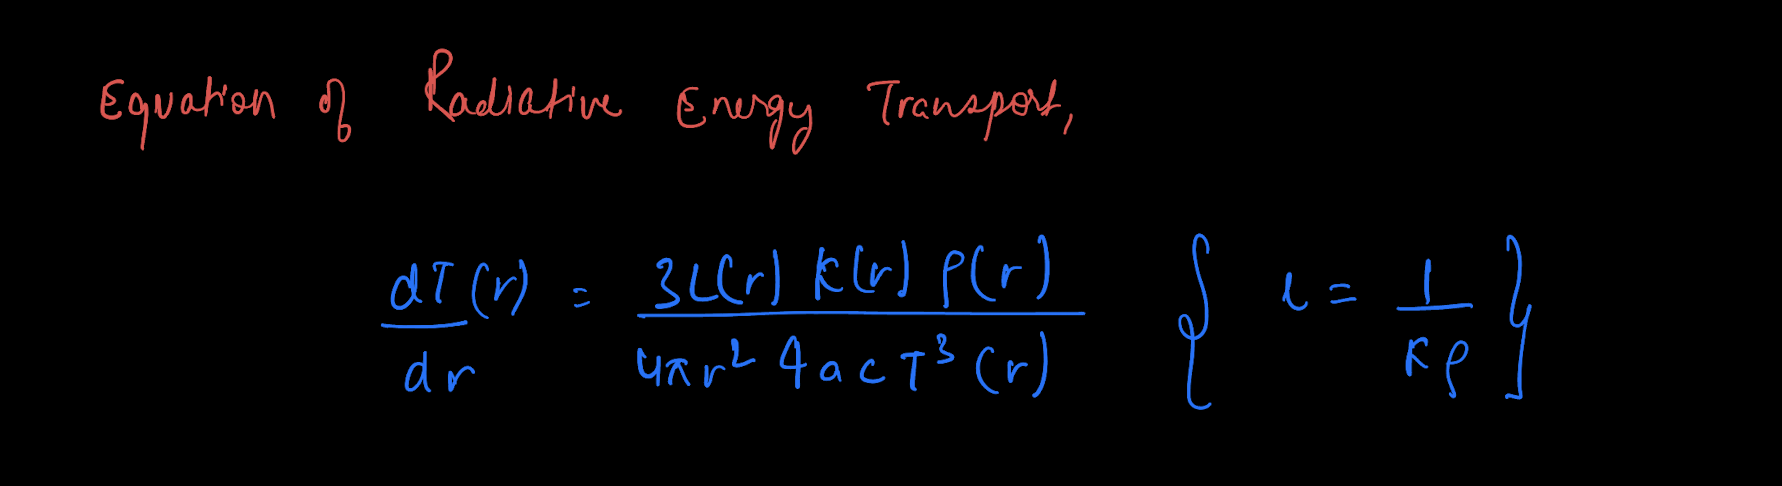 Equation of Radiative Energy Transport,
dT(r)/dr = 3L(r) κ(r) ρ(r) / 4πr² 4acT³(r) { l = 1/κρ }